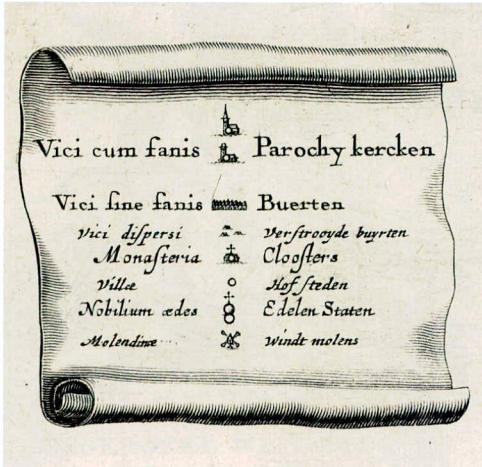 Vici cum fanis Parochy kercken
Vici ſine fanis Buerten
Vici diſperſi Verſtrooyde buyrten
Monaſteria Clooſters
Villæ Hof ſteden
Nobilium ædes Edelen Staten
Molendinæ Windt molens